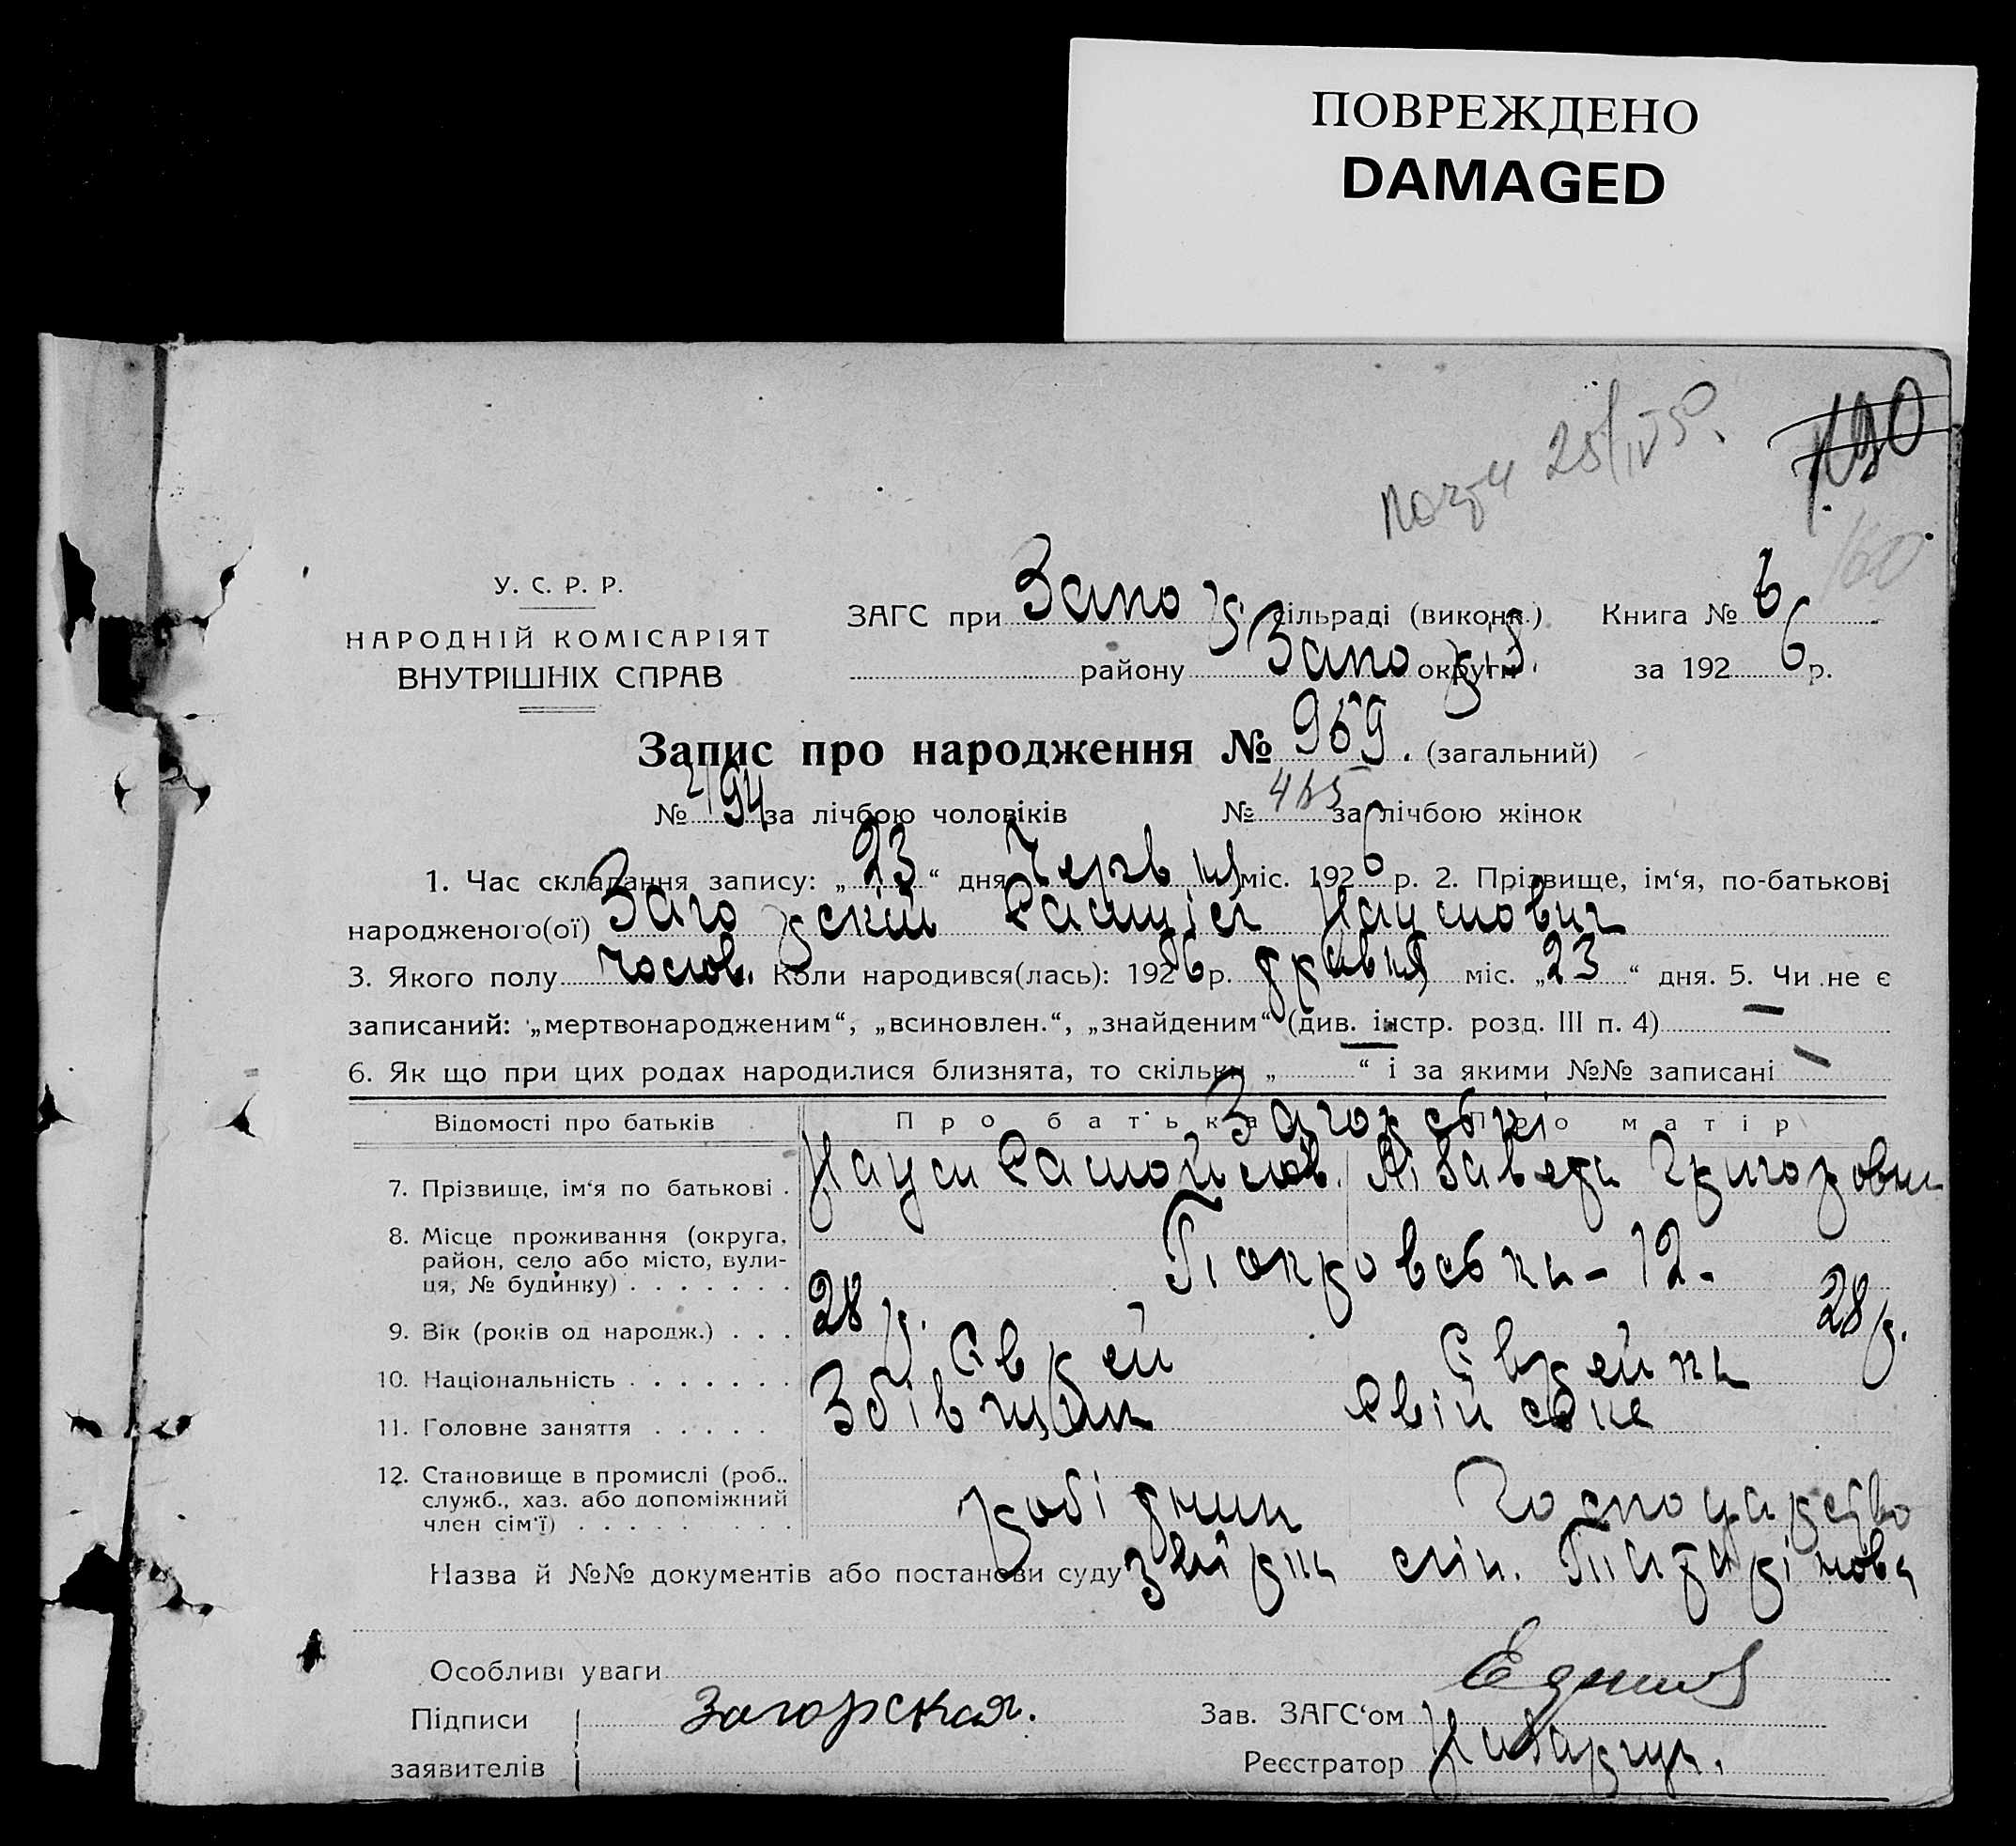 ПОВРЕЖДЕНО
DAMAGED
25/IV 50.
190
160
У. С. Р. Р.
НАРОДНІЙ КОМІСАРІЯТ
ВНУТРІШНІХ СПРАВ
ЗАГС при Запор. сільраді (виконк.) Книга № 6
району Запоріз. округи за 1926 р.
Запис про народження № 959. (загальний)
№ 494 за лічбою чоловіків № 465 за лічбою жінок
1. Час складання запису: „23“ дня Червня міс. 1926 р. 2. Прізвище, ім‘я, по-батькові
народженого(ої) Загорський Наумович
3. Якого полу чолов. Коли народився(лась): 1926 р. травня міс. „23“ дня. 5. Чи не є
записаний: „мертвонародженим“, „всиновлен.“, „знайденим“ (див. інстр. розд. III п. 4) —
6. Як що при цих родах народилися близнята, то скільки „—“ і за якими №№ записані —
Відомості про батьків Про батька Про матір
Загорські
7. Прізвище, ім‘я по батькові . Наум Самойлов. Лізавета Григоровна
8. Місце проживання (округа, район, село або місто, вулиця, № будинку) . . . . . . . Покровська - 12.
9. Вік (років од народж.) . . . 28 р. 28 р.
10. Національність . . . . . . . Єврей Єврейка
11. Головне заняття . . . . . Збівщик Свійське
12. Становище в промислі (роб., служб., хаз. або допоміжний член сім‘ї) . . . . . . . . робітник Господарство
Назва й №№ документів або постанови суду
Особливі уваги
Підписи заявителів Загорская.
Зав. ЗАГС‘ом
Реєстратор